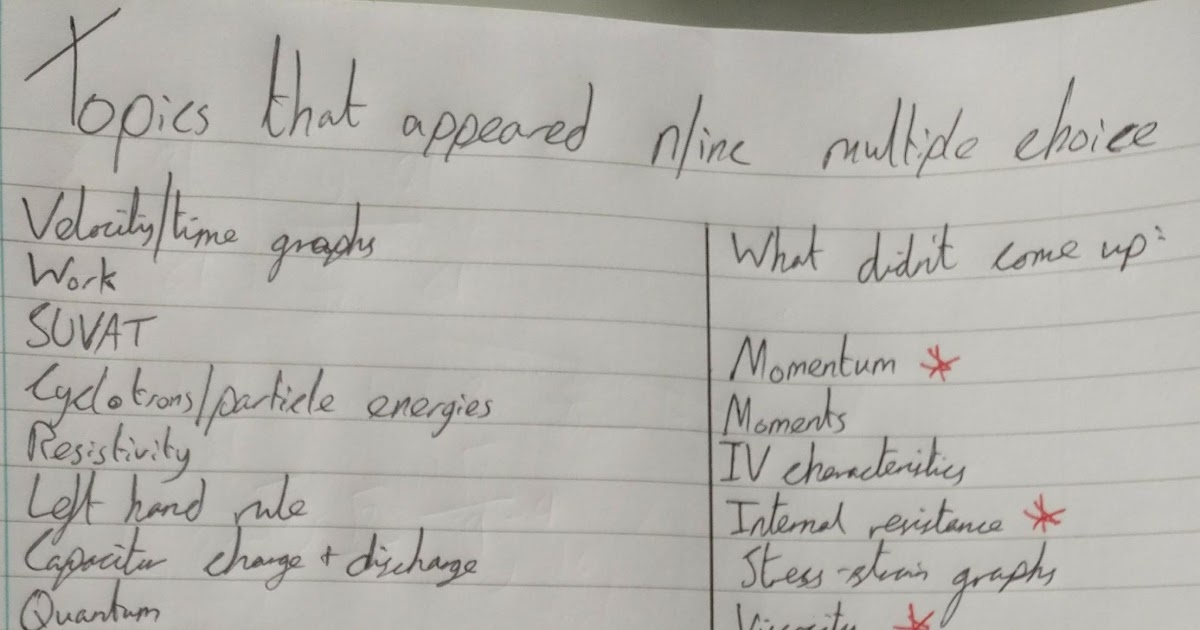 Topics that appeared n/inc multiple choice
Velocity/time graphs
Work
SUVAT
Cyclotrons/particle energies
Resistivity
Left hand rule
Capacitor charge + discharge
Quantum
What didn't come up:
Momentum *
Moments
IV characteristics
Internal resistance *
Stess-strain graphs
Viscosity *